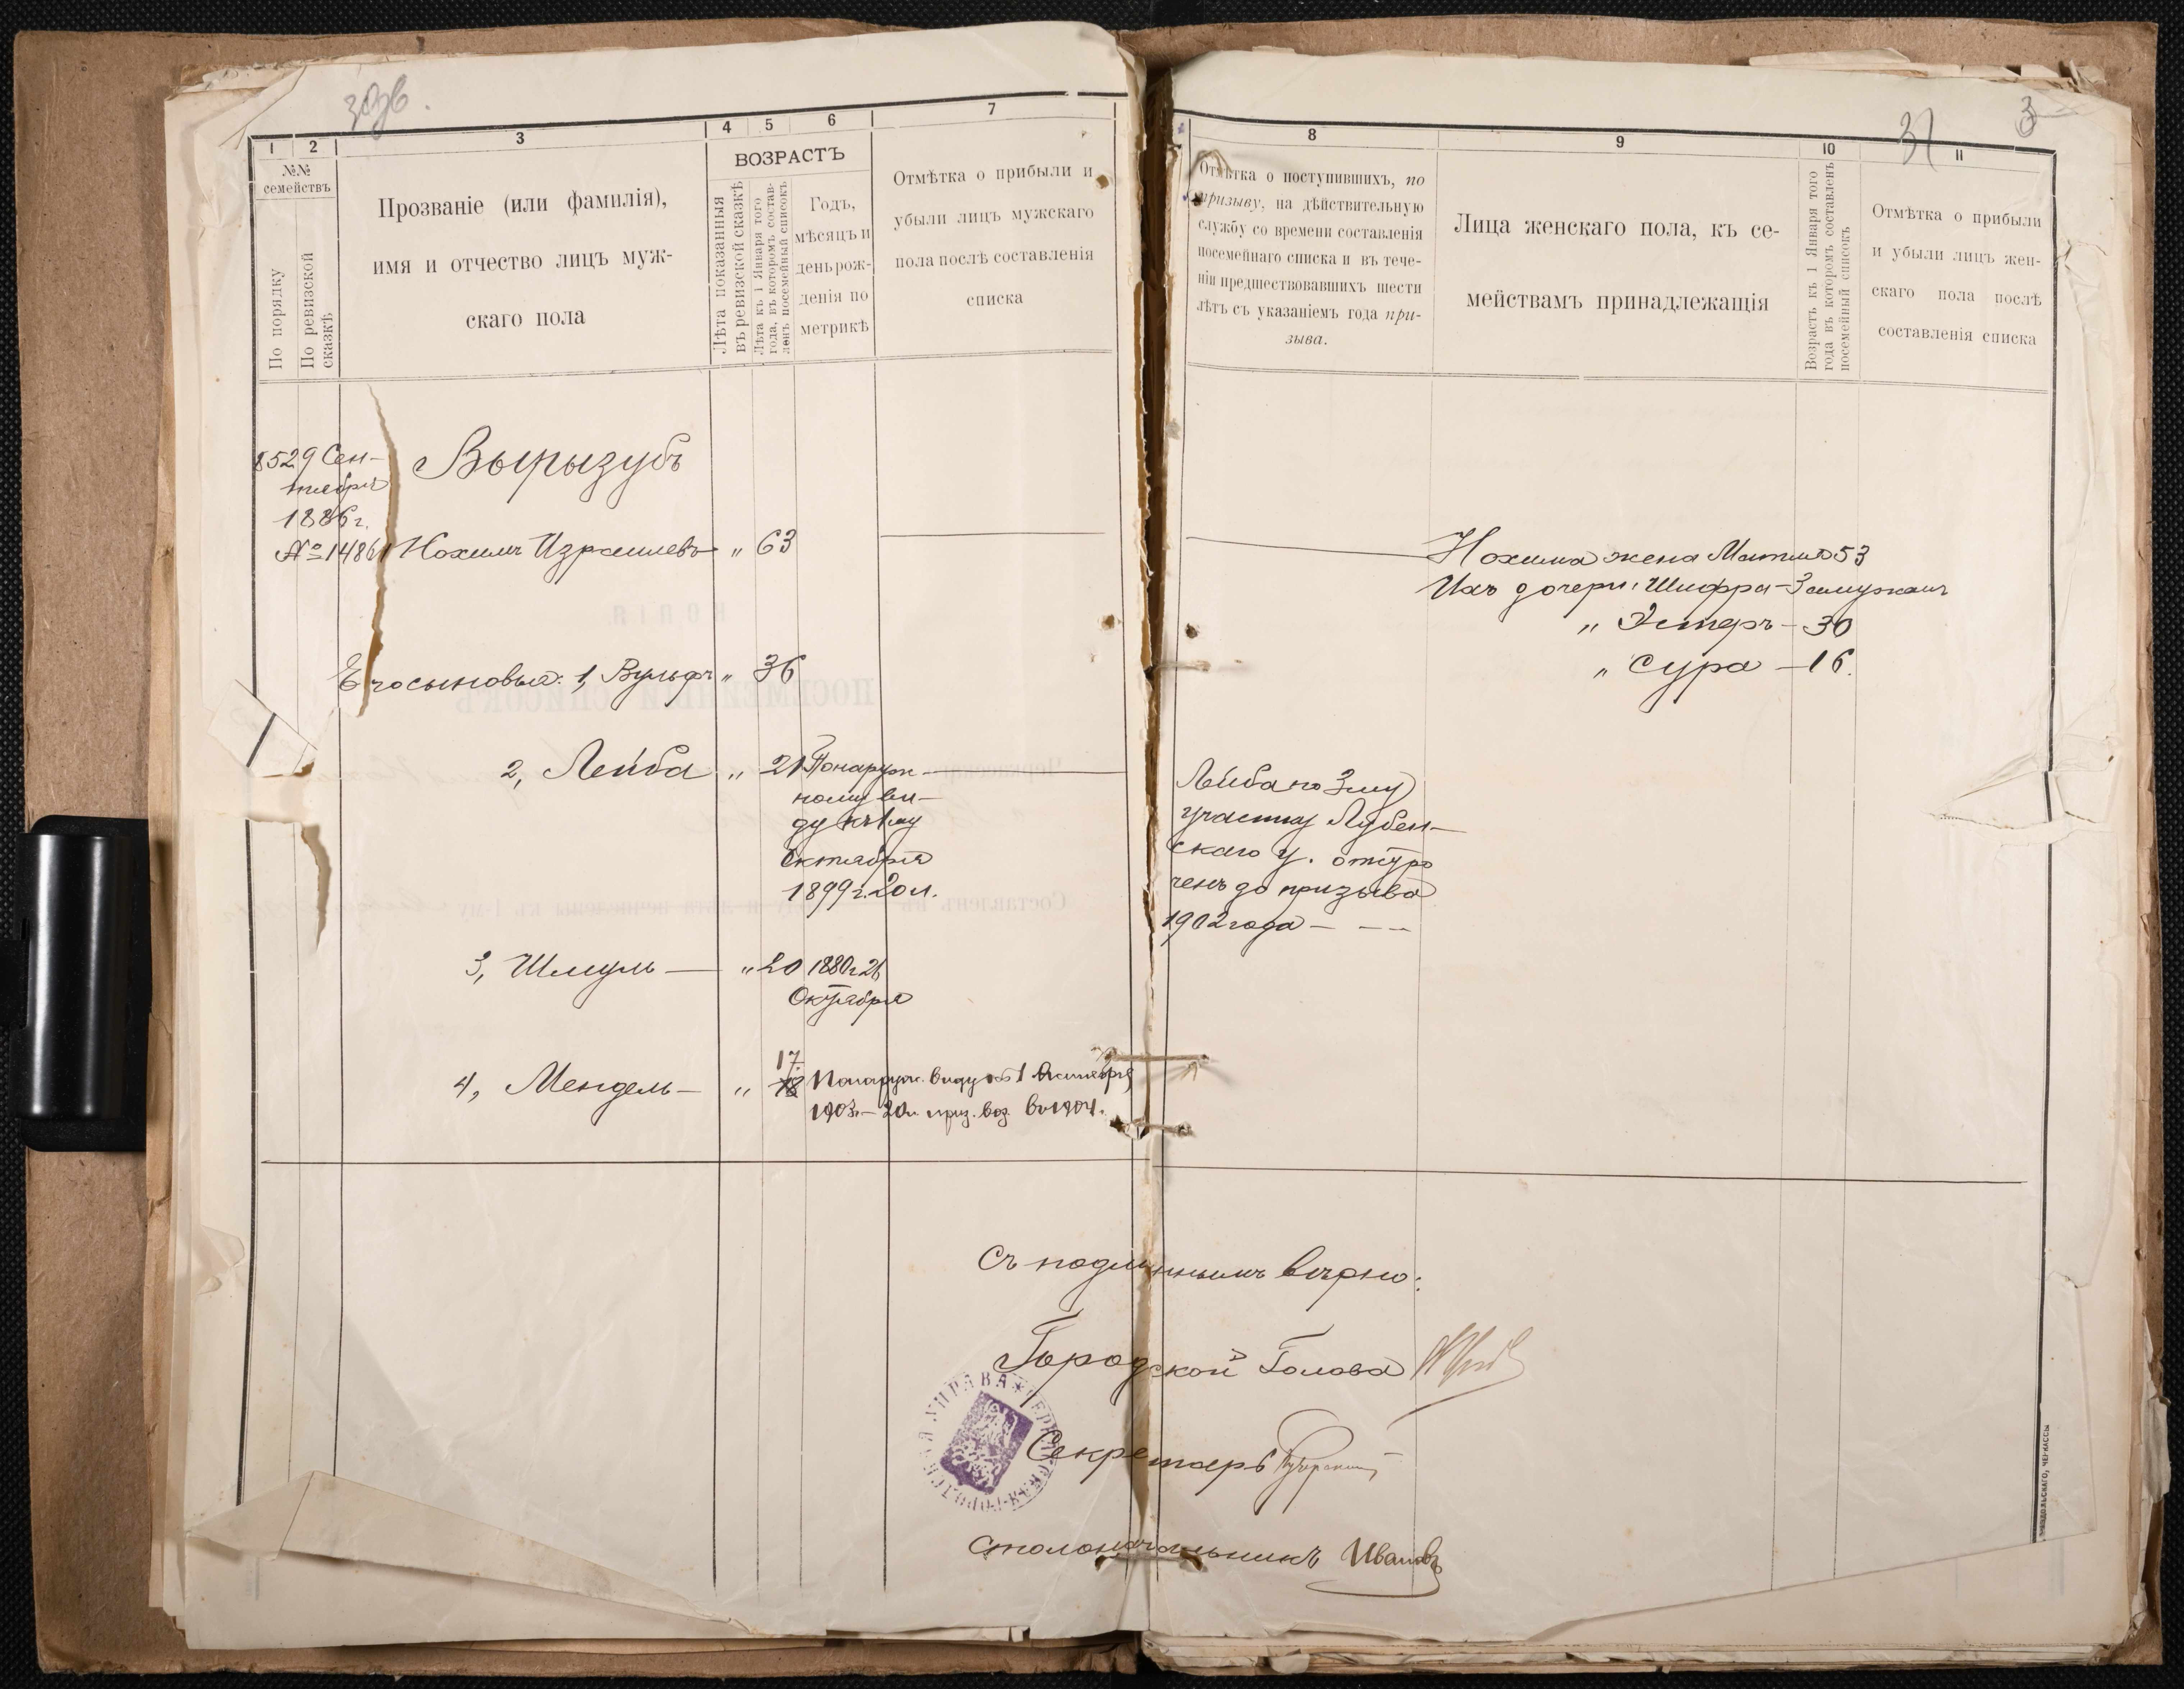 30об.
1 2 3 4 5 6 7
№№ семействъ
По порядку
По ревизской сказкѣ
Прозваніе (или фамилія),
имя и отчество лицъ муж-
скаго пола
ВОЗРАСТЪ
Лѣта показанныя
въ ревизской сказкѣ
Лѣта къ 1 Января того
года, въ которомъ состав-
ленъ посемейный списокъ
Годъ,
мѣсяцъ и
день рож-
денія по
метрикѣ
Отмѣтка о прибыли и
убыли лицъ мужскаго
пола послѣ составленія
списка
852 9 Сен-
тября
1886 г.
№ 14861
Вырызубъ
Нохимъ Израилевъ " 63
Его сыновья: 1, Вульфъ " 36
2, Лейба " 21 По наруж-
ному ви-
ду къ 1му
Октября
1899 г. 20 л.
3, Шмуль — " 20 1880 г. 26
Октября
17
4, Мендель — " 18 По наруж. виду къ 1 Октября
1903 г. — 20 л. приз. воз. въ 1904.
31 3
8 9 10 11
Отмѣтка о поступившихъ, по
призыву, на дѣйствительную
службу со времени составленія
посемейнаго списка и въ тече-
ніи предшествовавшихъ шести
лѣтъ съ указаніемъ года при-
зыва.
Лица женскаго пола, къ се-
мействамъ принадлежащія
Возрастъ къ 1 Января того
года въ которомъ составленъ
посемейный списокъ
Отмѣтка о прибыли
и убыли лицъ жен-
скаго пола послѣ
составленія списка
Нохима жена 53
Ихъ дочери: Шифра — Замужемъ
" Эстеръ — 30
" Сура — 16.
Лейба по 3му
участку Лубен-
скаго у. отсро
ченъ до призыва
1902 года — — —
Съ подлиннымъ вѣрно:
Городской Голова
Секретарь
Столоначальникъ Ивановъ
УПРАВА * ЧЕРКАССКАЯ ГОРОДСКАЯ
ЧЕРКАССЫ